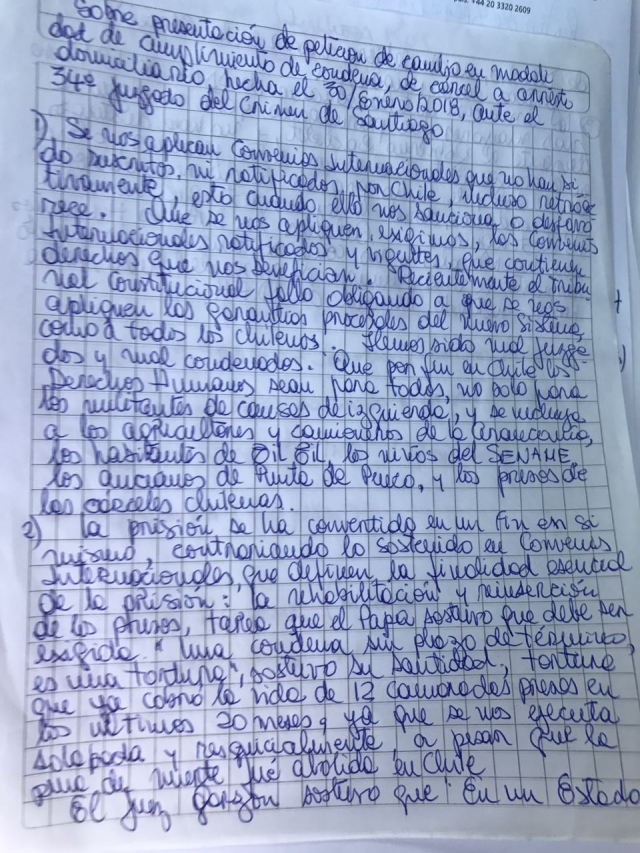 +44 20 3320 2609
Sobre presentación de petición de cambio en modali
dad de cumplimiento de condena, de cárcel a arresto
domiciliario, hecha el 30/Enero/2018, ante el
34º Juzgado del Crimen de Santiago
1) Se nos aplican Convenios Internacionales que no han si
do suscritos, ni ratificados, por Chile, incluso retroac
tivamente, esto cuando ello nos sanciona o desfavo
rece. Que se nos apliquen, exigimos, los Convenios
Internacionales ratificados y vigentes, que contienen
derechos que nos benefician. Recientemente el Tribu
nal Constitucional falló obligando a que se nos
apliquen las garantías procesales del Nuevo Sistema,
como a todos los chilenos. Hemos sido mal juzga
dos y mal condenados. Que por fin en Chile los
Derechos Humanos sean para todos, no solo para
los militantes de causas de izquierda, y se incluya
a los agricultores y camioneros de la Araucanía,
los habitantes de Til Til, los niños del SENAME,
los ancianos de Punta de Peuco, y los presos de
las cárceles chilenas.
2) La prisión se ha convertido en un fin en si
mismo, contrariando lo sostenido en Convenios
Internacionales, que definen la finalidad esencial
de la prisión: la rehabilitación y reinserción
de los presos, tarea que el Papa sostuvo que debe ser
exigida. "Una condena sin plazo de término,
es una tortura", sostuvo su santidad, tortura
que ya cobró la vida de 12 camaradas presos en
los últimos 20 meses, ya que se nos ejecuta
solapada y resquicialmente, a pesar que la
pena de muerte fué abolida en Chile
El juez Garzón sostuvo que: En un Estado